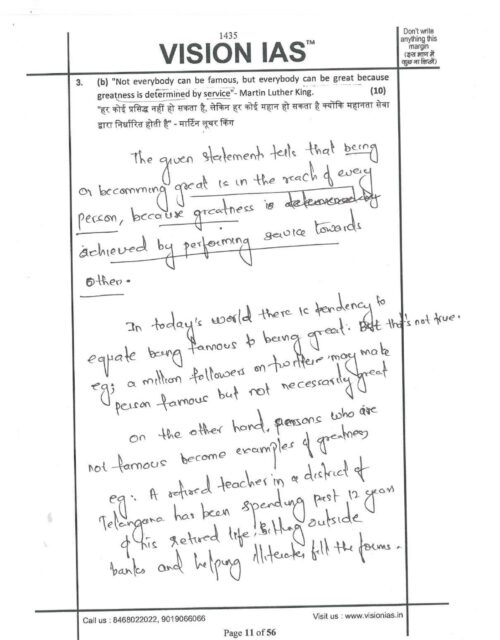 1435
VISION IAS™
Don't write
anything this
margin
(इस भाग में
कुछ ना लिखें)
3. (b) "Not everybody can be famous, but everybody can be great because
greatness is determined by service"- Martin Luther King. (10)
"हर कोई प्रसिद्ध नहीं हो सकता है, लेकिन हर कोई महान हो सकता है क्योंकि महानता सेवा
द्वारा निर्धारित होती है" - मार्टिन लूथर किंग
The given statement tells that being
or becomming great is in the reach of every
person, because greatness is
achieved by performing service towards
other.
In today's world there is tendency to
equate being famous to being great. But that's not true.
eg; a million followers on twitter may make
person famous but not necessarily great
on the other hand, persons who are
not famous become examples of greatness
eg:. A retired teacher in a district of
Telangana has been spending past 12 years
of his retired life, sitting outside
banks and helping illiterates fill the forms.
Call us : 8468022022, 9019066066
Visit us : www.visionias.in
Page 11 of 56